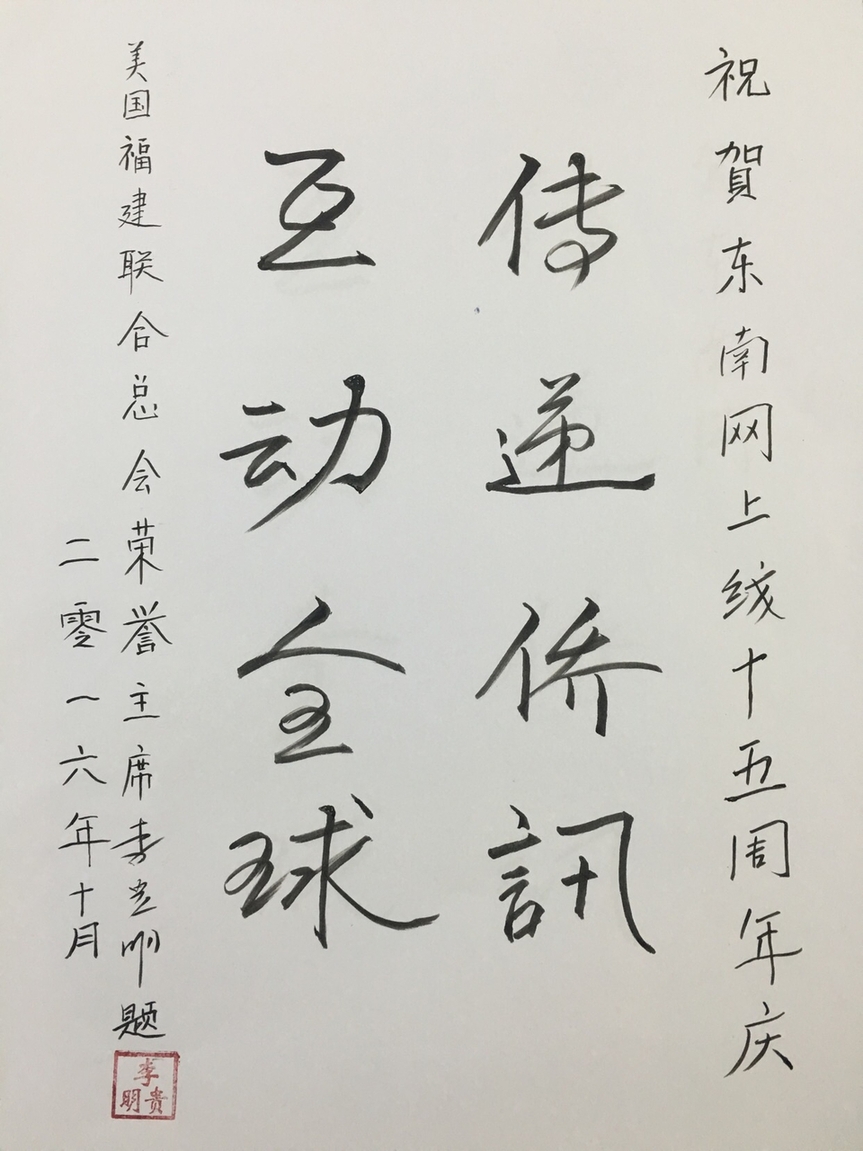 祝賀东南网上线十五周年庆
传递侨訊
互动全球
美国福建联合总会荣誉主席李贵明题
二零一六年十月
李贵明